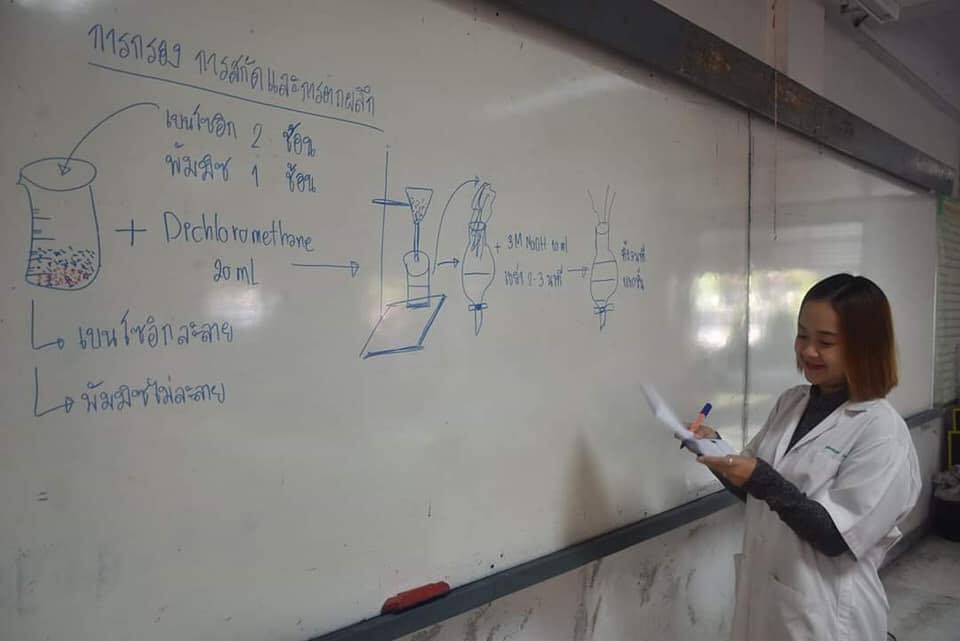 การกรอง การสกัดและการตกผลึก
เบนโซอิก 2 ช้อน
พัมมิซ 1 ช้อน
+ Dichloromethane
20 mL
เบนโซอิกละลาย
พัมมิซไม่ละลาย
+ 3M NaOH 10 ml
เขย่า 2-3 นาที
ทิ้งไว้นาที
=